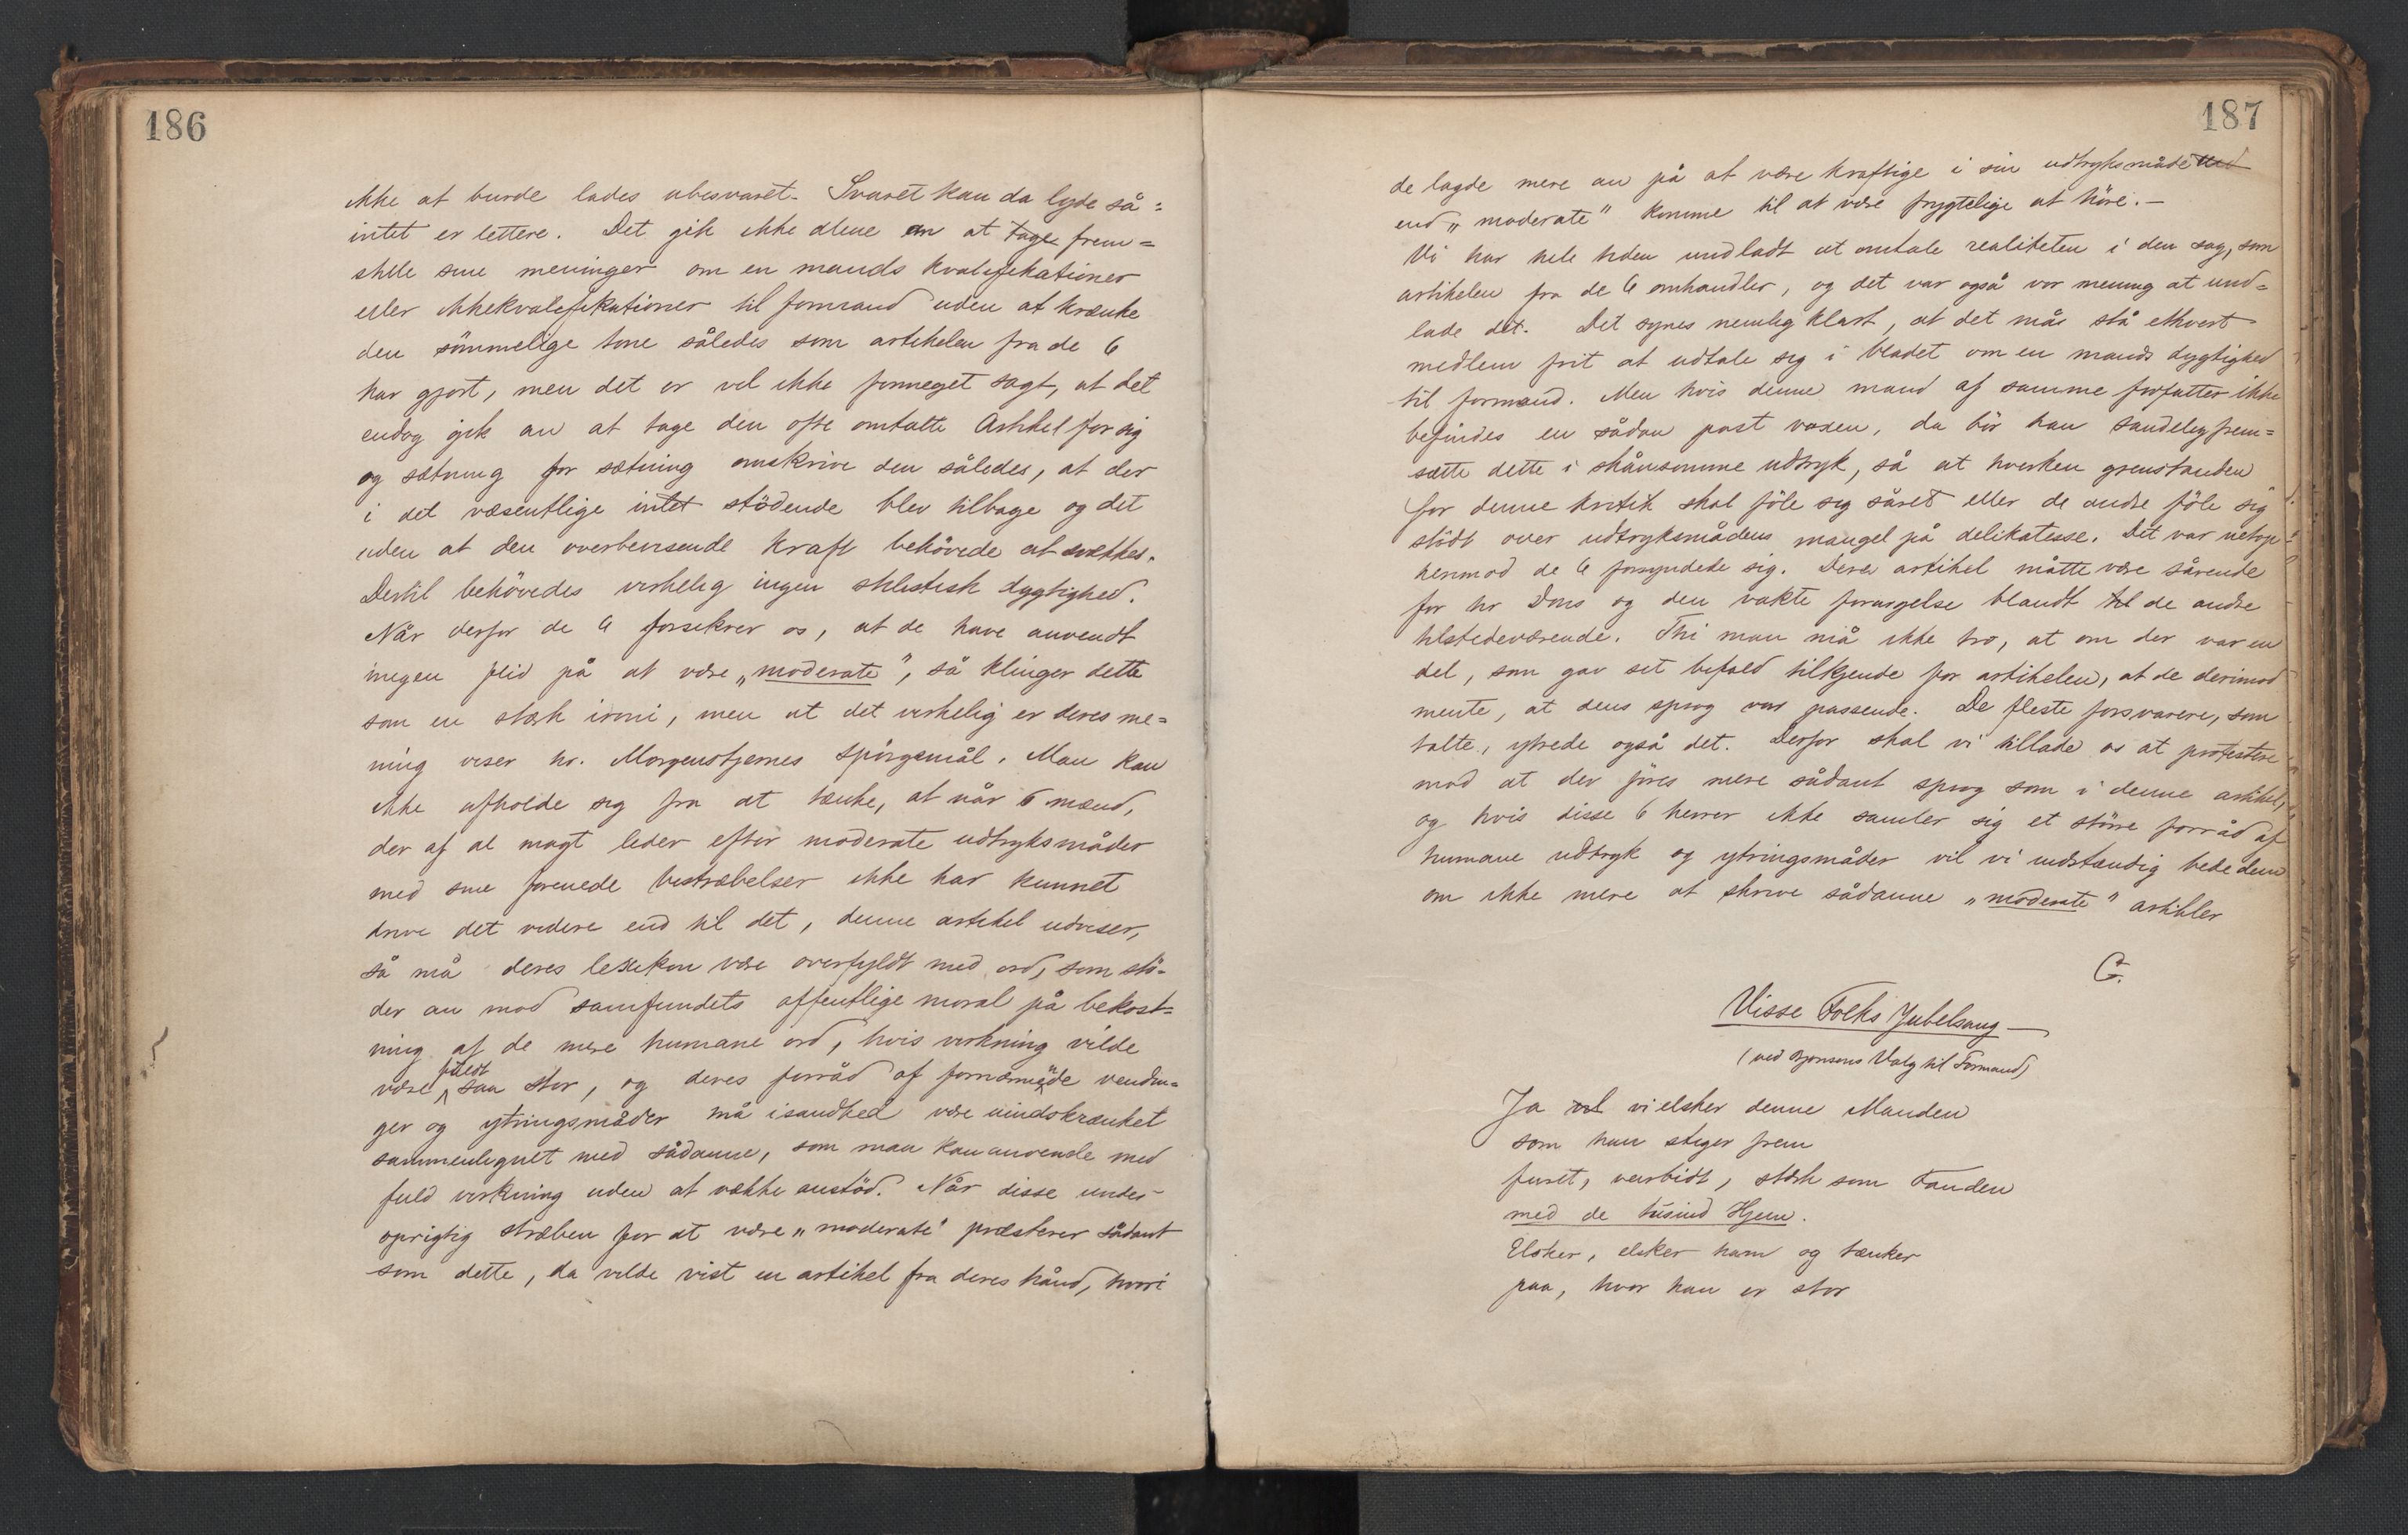 186
ikke at burde lades ubesvaret. Svaret kan da lyde så:
intet er lettere. Det gik ikke alene an at tage frem=
stille sine meninger om en mands kvalifikationer
eller ikkekvalifikationer til formand uden at krænke
den sömmelige tone således som artikelen fra de 6
har gjort, men det er vel ikke formeget sagt, at det
endog gik an at tage den ofte omtalte Artikel for sig
og sætning for sætning omskrive den således, at der
i det væsentlige intet stödende blev tilbage og det
uden at den overbevisende kraft behövede at svækkes.
Dertil behövedes virkelig ingen stilistisk dygtighed.
Når derfor de 6 forsikrer os, at de have anvendt
megen flid på at være „moderate", så klinger dette
som en stærk ironi, men at det virkelig er deres me=
ning viser hr. Morgenstjernes spörgsmål. Man kan
ikke afholde sig fra at tænke, at når 6 mænd,
der af al magt leder efter moderate udtryksmåder
med sine forenede bestræbelser ikke har kunnet
drive det videre end til det, denne artikel udviser,
så må deres lexikon være overfyldt med ord, som stö=
der an mod samfundets offentlige moral på bekost=
ning af de mere humane ord, hvis virkning vilde
være fuldt saa stor, og deres forråd af fornærmende vendin=
ger og ytringsmåder må isandhed være uindskrænket
sammenlignet med sådanne, som man kan anvende med
fuld virkning uden at vække anstöd. Når disse under
oprigtig stræben for at være „moderate" præsterer sådant
som dette, da vilde vist en artikel fra deres hånd, hvori
187
de lagde mere an på at være kraftige i sin udtryksmåde
end „moderate" komme til at være frygtelige at höre.—
Vi har hele tiden undladt at omtale realiteten i den sag, som
artikelen fra de 6 omhandler, og det var også vor mening at und=
lade det. Det synes nemlig klart, at det må stå ethvert
medlem frit at udtale sig i bladet om en mands dygtighed
til formand. Men hvis denne mand af samme forfatter ikke
befindes en sådan post voxen, da bör han sandelig frem=
sætte dette i skånsomme udtryk, så at hverken gjenstanden
for denne kritik skal föle sig såret eller de andre föle sig
stödt over udtryksmådens mangel på delikatesse. Det var netop
herimod de 6 forsyndede sig. Deres artikel måtte være sårende
for hr Dons og den vakte forargelse blandt til de andre
tilstedeværende. Thi man må ikke tro, at om der var en
del, som gav set bifald tilkjende for artikelen, at de derimod
mente, at dens sprog var passende. De fleste forsvarere, som
talte, ytrede også det. Derfor skal vi tillade os at protestere
mod at der föres mere sådant sprog som i denne artikel,
og hvis disse 6 herrer ikke samler sig et större forråd af
humane udtryk og ytringsmåder vil vi indstændig bede dem
om ikke mere at skrive sådanne „moderate" artikler
G.
Visse Folks Jubelsang—
(ved Bjonsons Valg til Formand)
Ja vel vi elsker denne Manden
som han stiger frem
furet, veirbidt, stærk som Fanden
med de tusind Hjem.
Elsker, elsker ham og tænker
paa, hvor han er stor